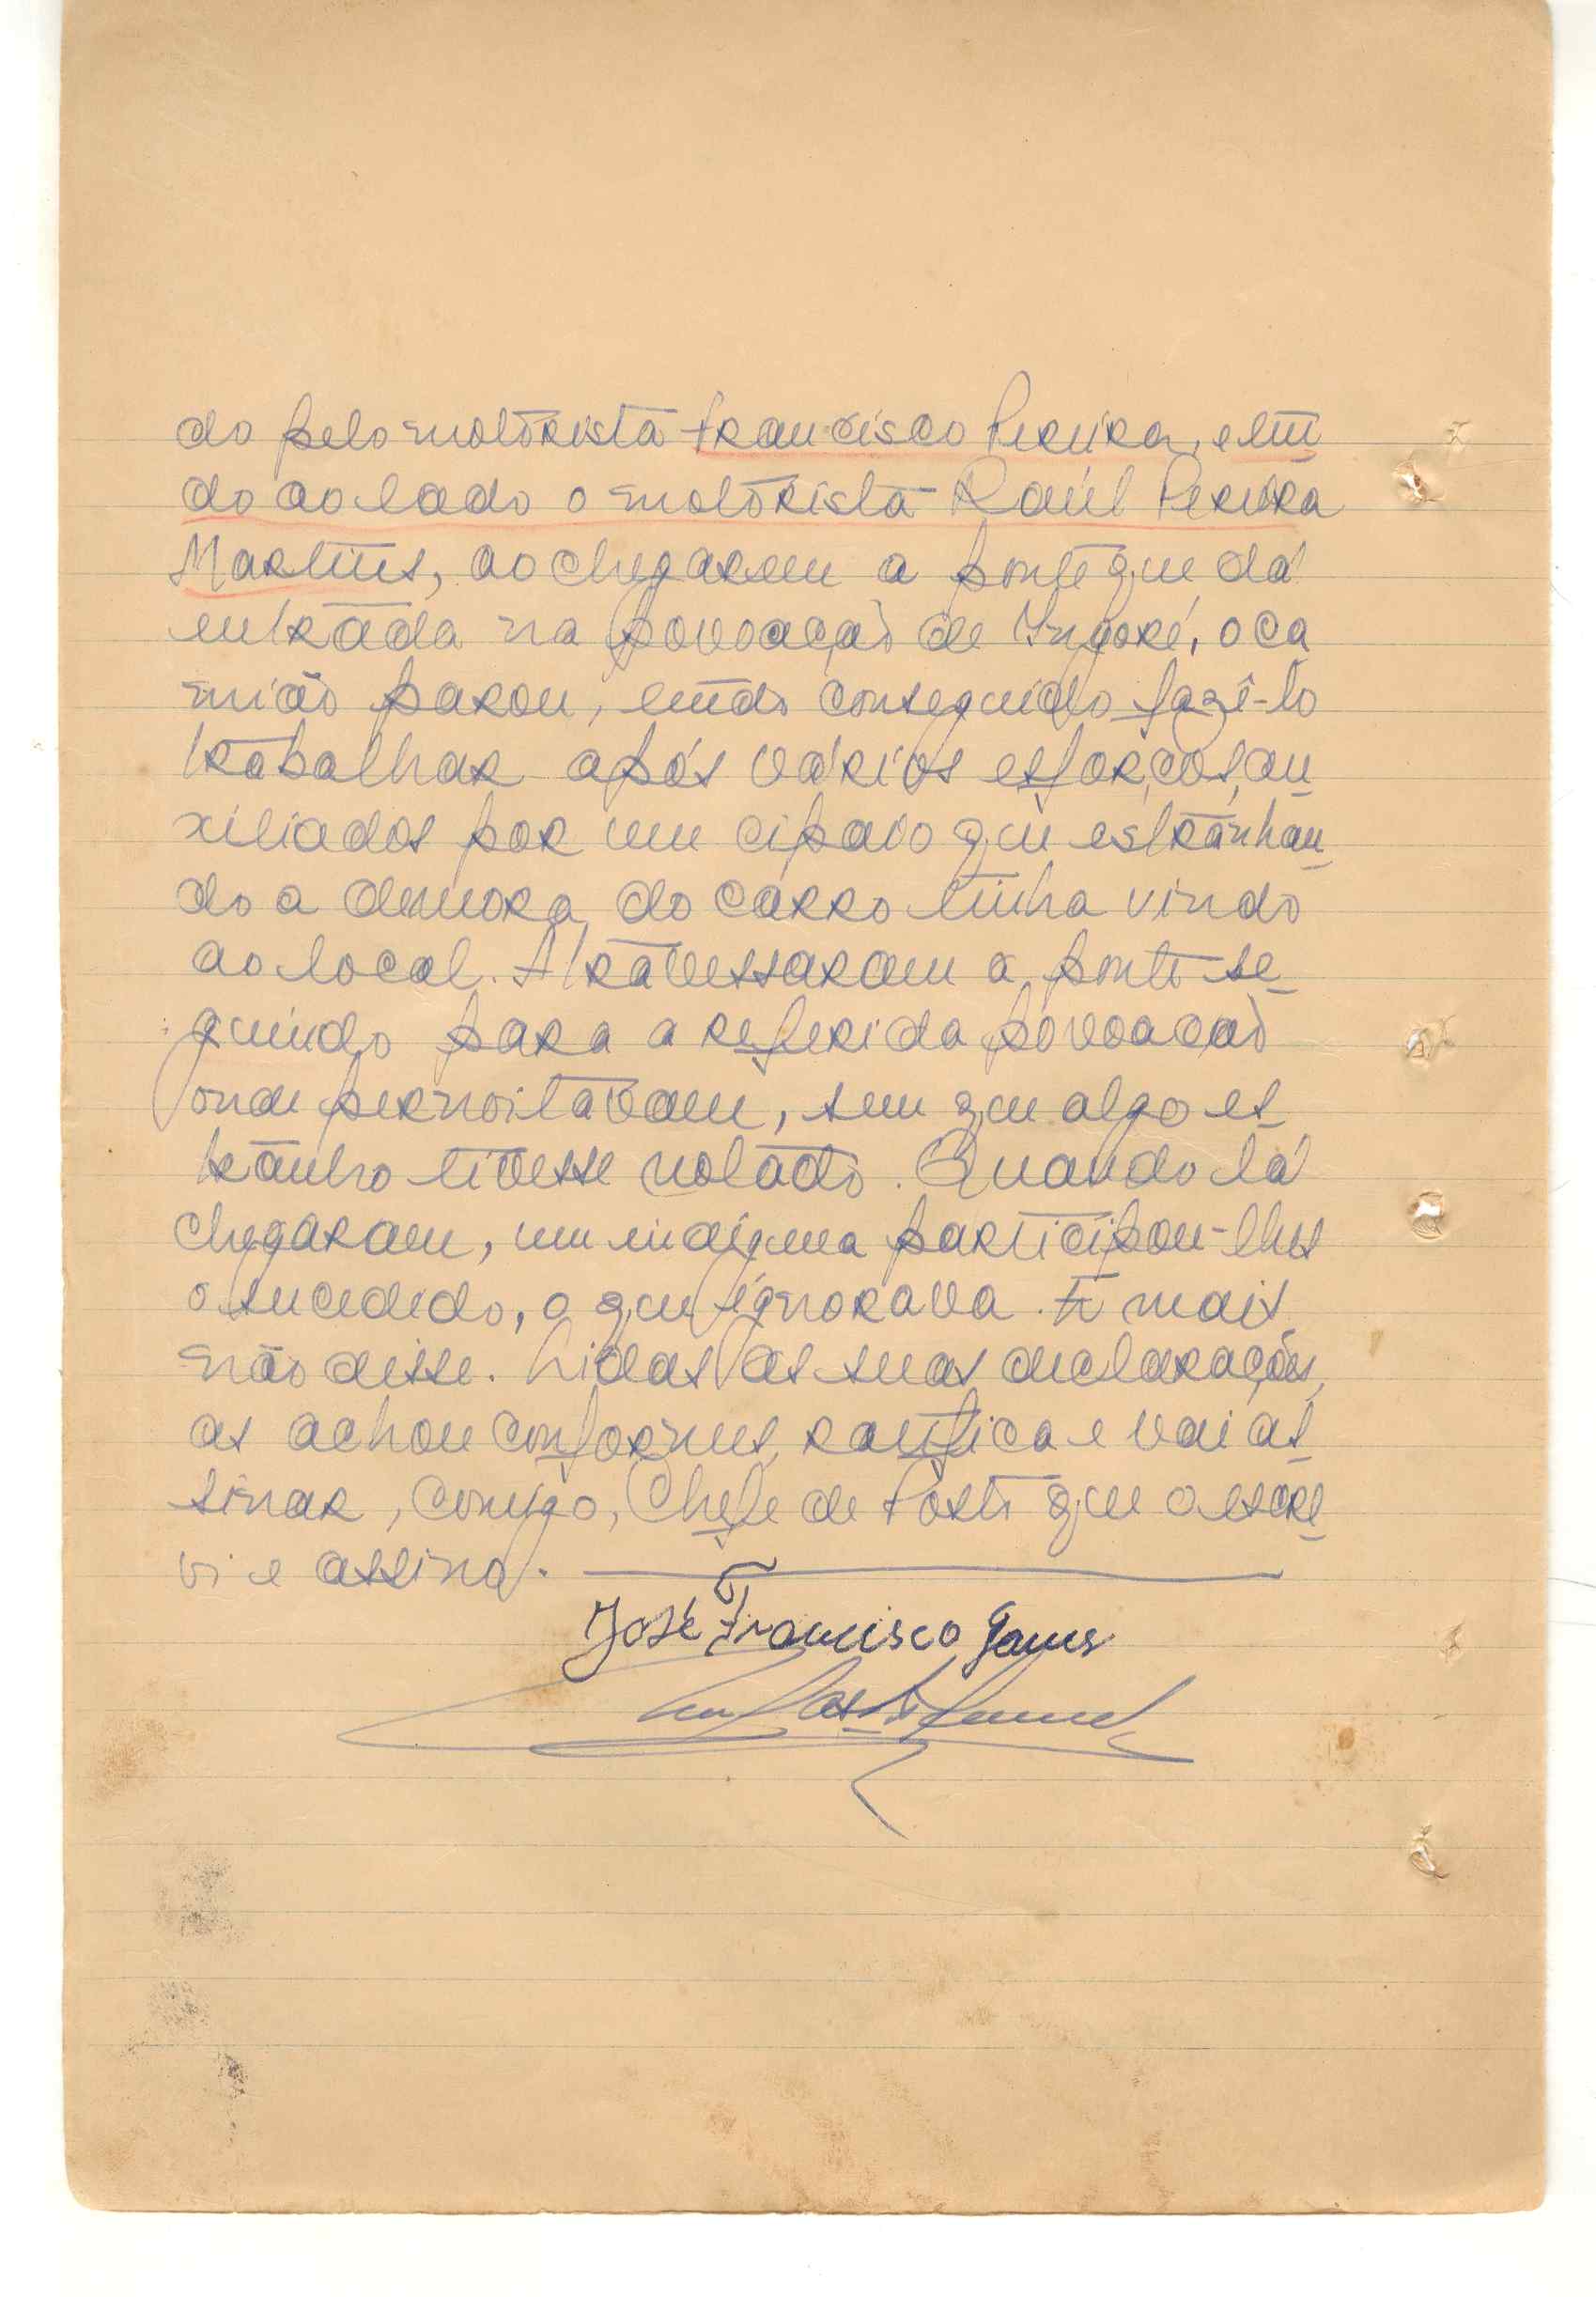 do pelo motorista Francisco Pereira, e ten
do ao lado o motorista Raúl Pereira
Martins, ao chegarem a ponte que dá
entrada na povoação de Ingoré, o ca
mião parou, tendo conseguido fazê-lo
trabalhar após vários esforços, au
xiliados por um cipaio que estranhan
do a demora do carro tinha vindo
ao local. Atravessaram a ponte se
guindo para a referida povoação
onde pernoitavam, sem que algo es
tranho tivesse notado. Quando lá
chegaram, um indígena participou-lhes
o sucedido, o que ignorava. E mais
não disse. Lidas as suas declarações,
as achou conformes, ratifica e vai as
sinar, comigo, Chefe de Posto que o escre
vi e assino.
José Francisco Gomes